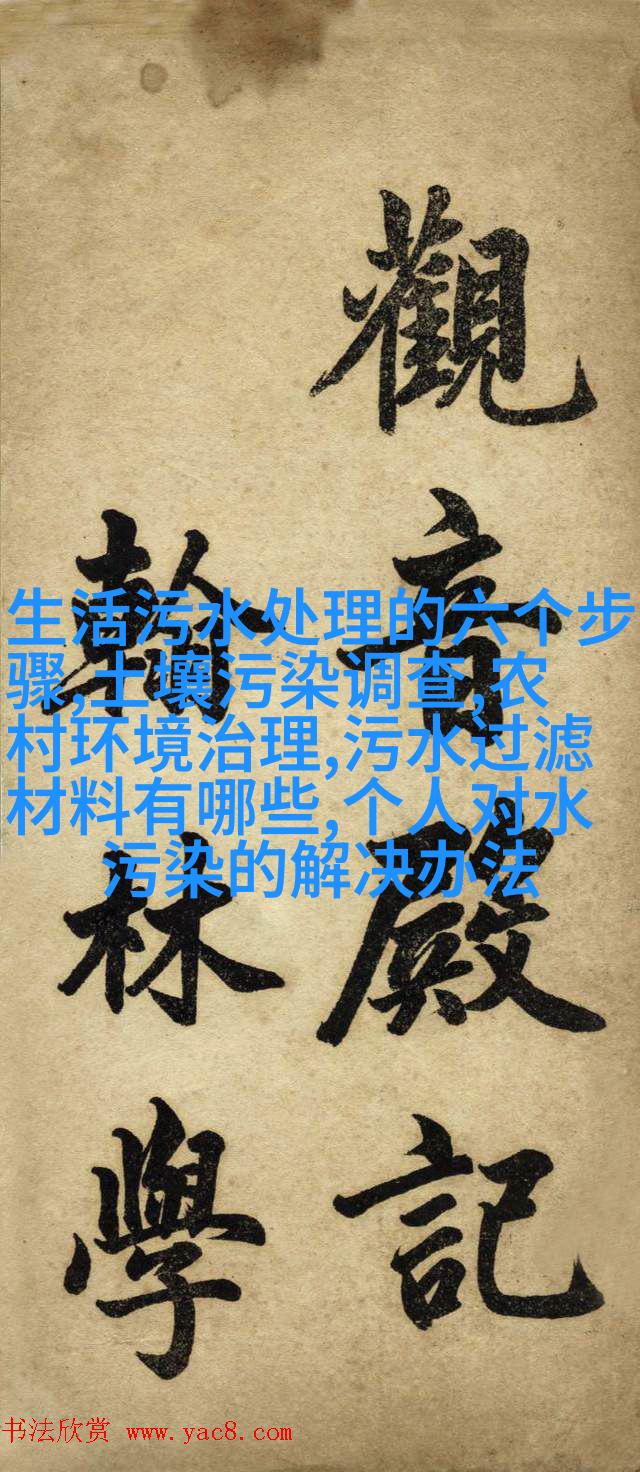 觀音殿記
翰林學
生活污水处理的六个步
骤,土壤污染调查,农
村环境治理,污水过滤
材料有哪些,个人对水
污染的解决办法
书法欣赏 www.yac8.com